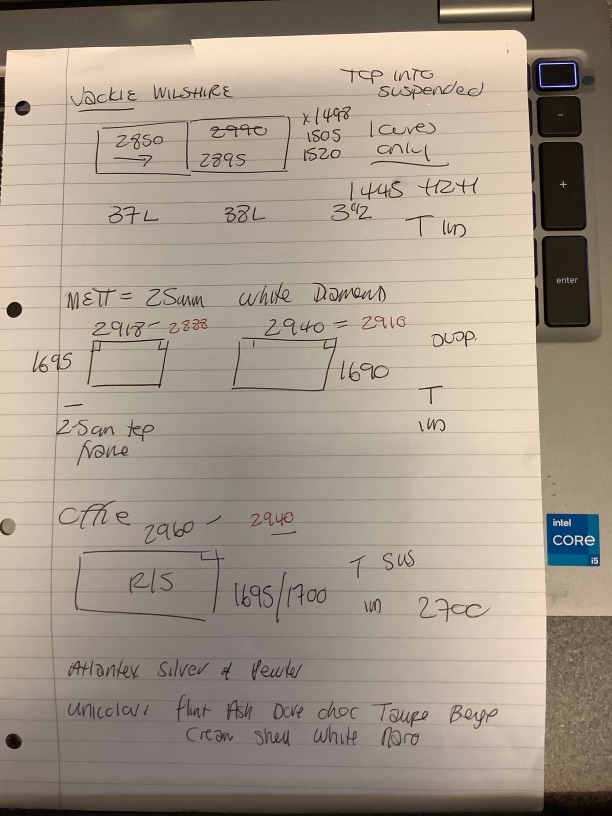 Jackie WILSHIRE
TOP INTO
suspended
2850 2990 x1498
2895 1505
1520
only
1445
37L 38L
T
METT = 25mm white Diamond
2918 - 2888 2940 = 2910
1695 1690
T
25mm top
Frame
Office 2960 - 2940
R/S 1695/1700
T SUS
2700
Atlantex Silver & Pewter
unicolour flint Ash Dove choc Taupe Beige
Cream Shell White
enter
intel
CORE
i5